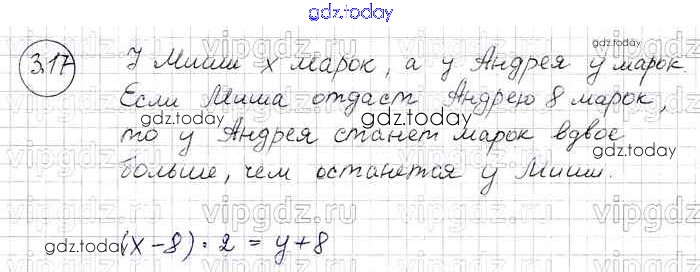 gdz.today
3.17 У Миши x марок, а у Андрея y марок.
gdz.today
Если Миша отдаст Андрею 8 марок,
gdz.today
то у Андрея станет марок вдвое
gdz.today
больше, чем останется у Миши.
vipgdz.ru
gdz.today
(x-8)·2 = y+8